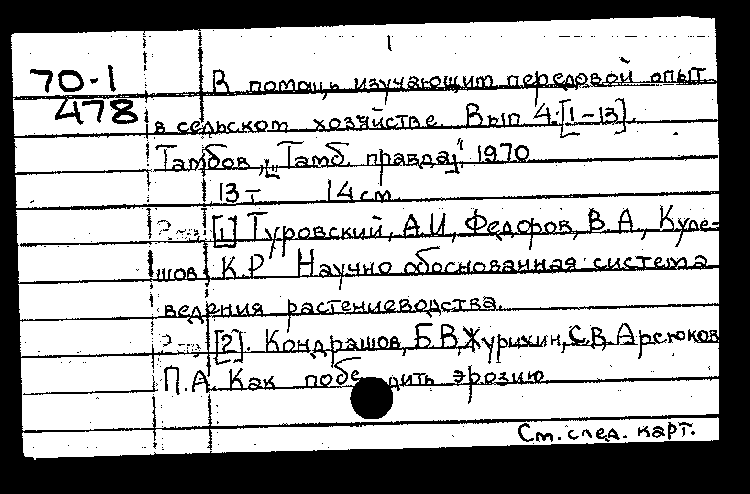 1
70-1
478
В помощь изучающим передовой опыт
в сельском хозяйстве. Вып 4. [1-13].
Тамбов, ["Тамб. правда]," 1970
13 т 14 см.
[1] Туровский, А.И., Федоров, В.А., Куле-
шов К.Р. Научно обоснованная система
ведения растениеводства.
[2]. Кондрашов, Б.В, Журихин, С.В. Арсюков
П.А. Как победить эрозию
См. след. карт.